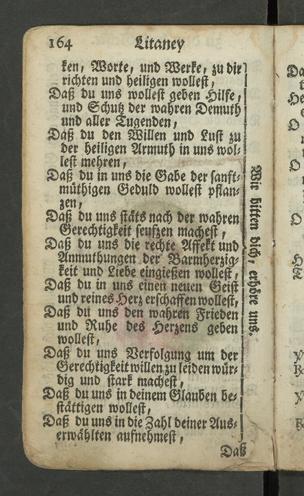 164 Litaney
ken, Worte, und Werke, zu dir
richten und heiligen wollest,
Daß du uns wollest geben Hilfe,
und Schutz der wahren Demuth
und aller Tugenden,
Daß du den Willen und Lust zu
der heiligen Armuth in uns wol-
lest mehren,
Daß du in uns die Gabe der sanft-
müthigen Geduld wollest pflan-
zen,
Daß du uns stäts nach der wahren
Gerechtigkeit seufzen machest,
Daß du uns die rechte Affekt und
Anmuthungen der Barmherzig-
keit und Liebe eingießen wollest,
Daß du in uns einen neuen Geist
und reines Herz erschaffen wollest,
Daß du uns den wahren Frieden
und Ruhe des Herzens geben
wollest,
Daß du uns Verfolgung um der
Gerechtigkeit willen zu leiden wür-
dig und stark machest,
Daß du uns in deinem Glauben be-
stättigen wollest,
Daß du uns in die Zahl deiner Aus-
erwählten aufnehmest,
Daß
Wir bitten dich, erhöre uns.